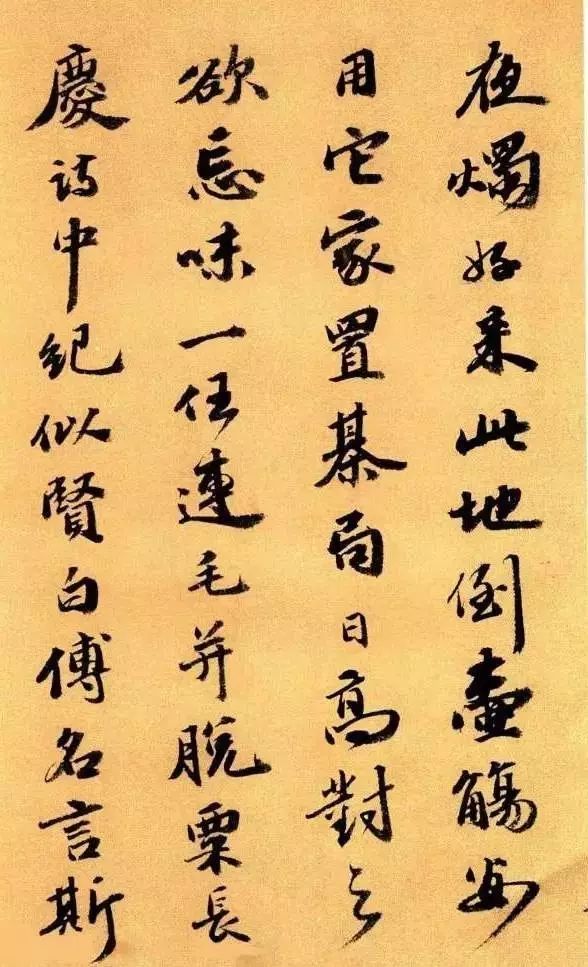 夜燭好来此地倒壷觴安
用它家置棊局日高對之
欲忘味一任連毛并脫栗長
慶詩中紀似賢白傅名言斯